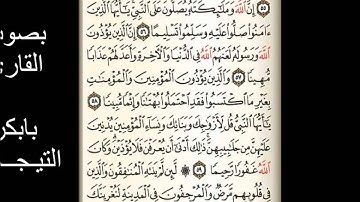 ٥٥ إِنَّ ٱللَّهَ وَمَلَٰٓئِكَتَهُۥ يُصَلُّونَ عَلَى ٱلنَّبِيِّ يَٰٓأَيُّهَا ٱلَّذِينَ
ءَامَنُوا۟ صَلُّوا۟ عَلَيْهِ وَسَلِّمُوا۟ تَسْلِيمًا ٥٦ إِنَّ ٱلَّذِينَ يُؤْذُونَ
ٱللَّهَ وَرَسُولَهُۥ لَعَنَهُمُ ٱللَّهُ فِي ٱلدُّنْيَا وَٱلْأٓخِرَةِ وَأَعَدَّ لَهُمْ عَذَابًا
مُّهِينًا ٥٧ وَٱلَّذِينَ يُؤْذُونَ ٱلْمُؤْمِنِينَ وَٱلْمُؤْمِنَٰتِ
بِغَيْرِ مَا ٱكْتَسَبُوا۟ فَقَدِ ٱحْتَمَلُوا۟ بُهْتَٰنًا وَإِثْمًا مُّبِينًا ٥٨
يَٰٓأَيُّهَا ٱلنَّبِيُّ قُل لِّأَزْوَٰجِكَ وَبَنَاتِكَ وَنِسَآءِ ٱلْمُؤْمِنِينَ يُدْنِينَ
عَلَيْهِنَّ مِن جَلَٰبِيبِهِنَّ ذَٰلِكَ أَدْنَىٰٓ أَن يُعْرَفْنَ فَلَا يُؤْذَيْنَ وَكَانَ
ٱللَّهُ غَفُورًا رَّحِيمًا ٥٩ لَّئِن لَّمْ يَنتَهِ ٱلْمُنَٰفِقُونَ وَٱلَّذِينَ
فِي قُلُوبِهِم مَّرَضٌ وَٱلْمُرْجِفُونَ فِي ٱلْمَدِينَةِ لَنُغْرِيَنَّكَ
بصو
القار
بابكر
التيجـ